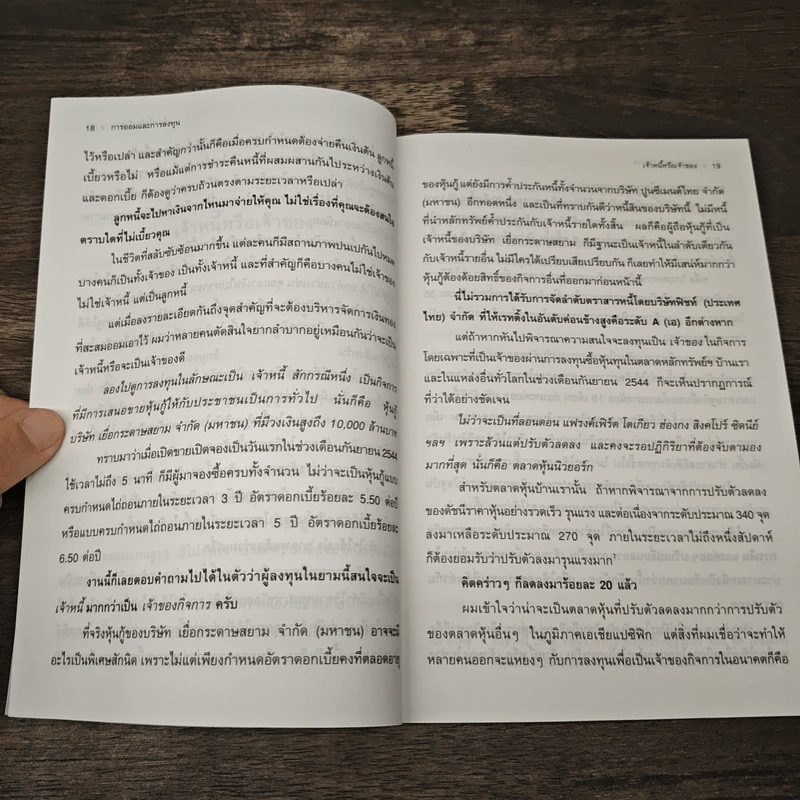 18 การออมและการลงทุน
ไว้หรือเปล่า และสำคัญกว่านั้นก็คือเมื่อครบกำหนดต้องจ่ายคืนเงินต้น ลูกหนี้
เบี้ยวหรือไม่ หรือแม้แต่การชำระคืนหนี้ที่ผสมผสานกันไประหว่างเงินต้น
และดอกเบี้ย ก็ต้องดูว่าครบถ้วนตรงตามระยะเวลาหรือเปล่า
ลูกหนี้จะไปหาเงินจากไหนมาจ่ายให้คุณ ไม่ใช่เรื่องที่คุณจะต้องสนใจ
ตราบใดที่ไม่เบี้ยวคุณ
ในชีวิตที่สลับซับซ้อนมากขึ้น แต่ละคนก็มีสถานภาพปนเปกันไปหมด
บางคนก็เป็นทั้งเจ้าของ เป็นทั้งเจ้าหนี้ และที่สำคัญก็คือบางคนไม่ใช่เจ้าของ
ไม่ใช่เจ้าหนี้ แต่เป็นลูกหนี้
แต่เมื่อลงรายละเอียดกันถึงจุดสำคัญที่จะต้องบริหารจัดการเงินทอง
ที่สะสมออมเอาไว้ ผมว่าหลายคนตัดสินใจยากลำบากอยู่เหมือนกันว่าจะเป็น
เจ้าหนี้หรือจะเป็นเจ้าของดี
ลองไปดูการลงทุนในลักษณะเป็น เจ้าหนี้ สักกรณีหนึ่ง เป็นกิจการ
ที่มีการเสนอขายหุ้นกู้ให้กับประชาชนเป็นการทั่วไป นั่นก็คือ หุ้นกู้
บริษัท เยื่อกระดาษสยาม จำกัด (มหาชน) ที่มีวงเงินสูงถึง 10,000 ล้านบาท
ทราบมาว่าเมื่อเปิดขายเปิดจองเป็นวันแรกในช่วงเดือนกันยายน 2544
ใช้เวลาไม่ถึง 5 นาที ก็มีผู้มาจองซื้อครบทั้งจำนวน ไม่ว่าจะเป็นหุ้นกู้แบบ
ครบกำหนดไถ่ถอนภายในระยะเวลา 3 ปี อัตราดอกเบี้ยร้อยละ 5.50 ต่อปี
หรือแบบครบกำหนดไถ่ถอนภายในระยะเวลา 5 ปี อัตราดอกเบี้ยร้อยละ
6.50 ต่อปี
งานนี้ก็เลยตอบคำถามไปได้ในตัวว่าผู้ลงทุนในยามนี้สนใจจะเป็น
เจ้าหนี้ มากกว่าเป็น เจ้าของกิจการ ครับ
ที่จริงหุ้นกู้ของบริษัท เยื่อกระดาษสยาม จำกัด (มหาชน) อาจจะมี
อะไรเป็นพิเศษสักนิด เพราะไม่แต่เพียงกำหนดอัตราดอกเบี้ยคงที่ตลอดอายุ
เจ้าหนี้หรือเจ้าของ 19
ของหุ้นกู้ แต่ยังมีการค้ำประกันหนี้ทั้งจำนวนจากบริษัท ปูนซีเมนต์ไทย จำกัด
(มหาชน) อีกทอดหนึ่ง และเป็นที่ทราบกันดีว่าหนี้สินของบริษัทนี้ ไม่มีหนี้
ที่นำหลักทรัพย์ค้ำประกันกับเจ้าหนี้รายใดทั้งสิ้น ผลก็คือผู้ถือหุ้นกู้ที่เป็น
เจ้าหนี้ของบริษัท เยื่อกระดาษสยาม ก็มีฐานะเป็นเจ้าหนี้ในลำดับเดียวกัน
กับเจ้าหนี้รายอื่น ไม่มีใครได้เปรียบเสียเปรียบกัน ก็เลยทำให้มีเสน่ห์มากกว่า
หุ้นกู้ด้อยสิทธิ์ของกิจการอื่นที่ออกมาก่อนหน้านี้
นี่ไม่รวมการได้รับการจัดลำดับตราสารหนี้โดยบริษัทฟิทช์ (ประเทศ
ไทย) จำกัด ที่ให้เรทติ้งในอันดับค่อนข้างสูงคือระดับ A (เอ) อีกต่างหาก
แต่ถ้าหากหันไปพิจารณาความสนใจจะลงทุนเป็น เจ้าของ ในกิจการ
โดยเฉพาะที่เป็นเจ้าของผ่านการลงทุนซื้อหุ้นทุนในตลาดหลักทรัพย์ฯ บ้านเรา
และในแหล่งอื่นทั่วโลกในช่วงเดือนกันยายน 2544 ก็จะเห็นปรากฏการณ์
ที่ว่าได้อย่างชัดเจน
ไม่ว่าจะเป็นที่ลอนดอน แฟรงค์เฟิร์ต โตเกียว ฮ่องกง สิงคโปร์ ซิดนีย์
ฯลฯ เพราะล้วนแต่ปรับตัวลดลง และคงจะรอปฏิกิริยาที่ต้องจับตามอง
มากที่สุด นั่นก็คือ ตลาดหุ้นนิวยอร์ก
สำหรับตลาดหุ้นบ้านเรานั้น ถ้าหากพิจารณาจากการปรับตัวลดลง
ของดัชนีราคาหุ้นอย่างรวดเร็ว รุนแรง และต่อเนื่องจากระดับประมาณ 340 จุด
ลงมาเหลือระดับประมาณ 270 จุด ภายในระยะเวลาไม่ถึงหนึ่งสัปดาห์
ก็ต้องยอมรับว่าปรับตัวลงมารุนแรงมาก¹
คิดคร่าวๆ ก็ลดลงมาร้อยละ 20 แล้ว
ผมเข้าใจว่าน่าจะเป็นตลาดหุ้นที่ปรับตัวลดลงมากกว่าการปรับตัว
ของตลาดหุ้นอื่นๆ ในภูมิภาคเอเชียแปซิฟิก แต่สิ่งที่ผมเชื่อว่าจะทำให้
หลายคนออกจะแหยงๆ กับการลงทุนเพื่อเป็นเจ้าของกิจการในอนาคตก็คือ